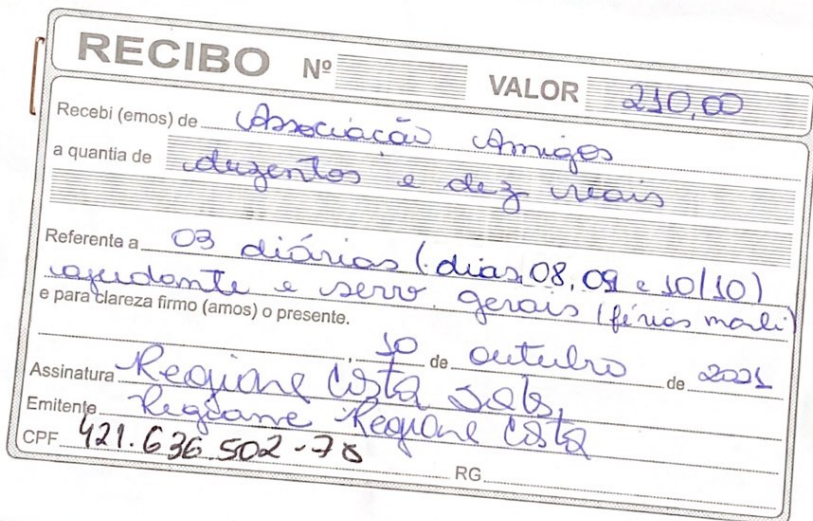 RECIBO Nº VALOR 210,00
Recebi (emos) de Associação Amigos
a quantia de duzentos e dez reais
Referente a 03 diárias (dias 08, 09 e 10/10)
ajudante e serv. gerais (férias marli)
e para clareza firmo (amos) o presente.
, 10 de outubro de 2021
Assinatura Regiane Costa
Emitente Regiane Regiane Costa
CPF 421.636.502-78 RG